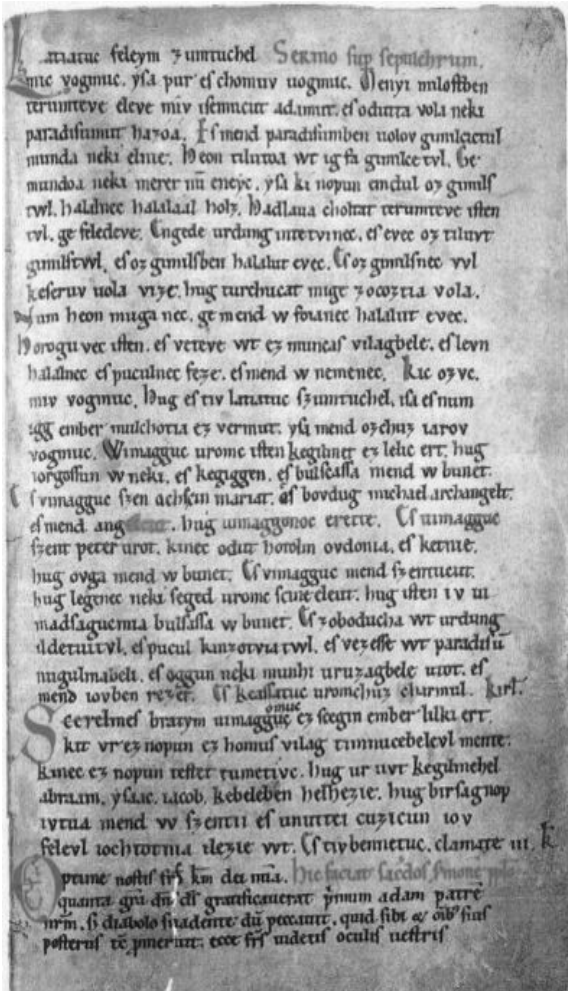 Latiatuc feleym zumtuchel Sermo sup sepulchrum.
mic vogmuc. ysa pur es chomuv uogmuc. Menyi milostben
terumteve eleve miv isemucut adamut. es odutta vola neki
paradisumut hazoa. Es mend paradisumben uolov gimilcictul
munda neki elnie. Heon tilutoa wt ig fa gimilce tvl. Ge
mundoa neki meret nū eneyc. ysa ki nopun emdul oz gimils
twl. halalnec halalaal holz. Hadlaua choltat terumteve isten
tvl. ge feledeve. Engede urdung intetvinec. es evec oz tiluvt
gimilstwl. es oz gimilsben halalut evec. Es oz gimilsnec vvl
keseruv uola vize. hug turchucat mige zocoztia vola.
Num heon muga nec. ge mend w foianec halalut evec.
Horogu vec isten. es veteve wt ez muncas vilagbele. es levn
halalnec es puculnec feze. es mend w nemenec. Kic ozvc.
miv vogmuc. Hug es tiv latiatuv szumtuchel. isa es num
igg ember mulchotia ez vermut. ysa mend ozchuz iarov
vogmuc. Wimagguc uromc isten kegilmet ez lelic ert. hug
iorgossun w neki. es kegiggen. es bulsassa mend w bunet.
Es vimagguc szen achscin mariat. es bovdug michael archangelt.
es mend angelcut. hug uimaggonoc erette. Es uimagguc
szent peter urot. kinec odut hotolm ovdonia. es ketnie.
hug ovga mend w bunet. Es vimagguc mend szentucut.
hug legenec neki seged uromc scine eleut. hug isten iv ui
madsaguc mia bulsassa w bunet. Es zoboducha wt urdung
ildetuitvl. es pucul kinzotviatwl. es vezesse wt paradisū
nugulmabeli. es oggun neki munhi uruzagbele utot. es
mend iovben rezet. Es keassatuc uromchuz charmul. kirł.
Scerelmes bratym uimagguc omuc ez scegin ember lilki ert.
kit vr ez nopun ez homus vilag timnucebelevl mente.
kinec ez nopun testet tumetivc. hug ur uvt kegilmehel
abraam. ysaac. iacob. kebeleben helhezie. hug birsagnop
ivtua mend w szentii es unuttei cuzicun iov
felevl iochtotnia ilezie wt. Es tivbennetuc. clamate iii. k̄
Optime nostis frs km dei mīa. Hic faciat sacdos simone pplo
quanta grā dn̄s d̄s gratificauerat p̄mum adam patrē
nrm̄. s; diabolo suadente dū peccauit. quid sibi & oīb; suis
posteris rē pineriit. ecce frs uidetis oculis uestris